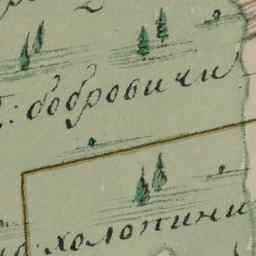 бобровичи
холопини